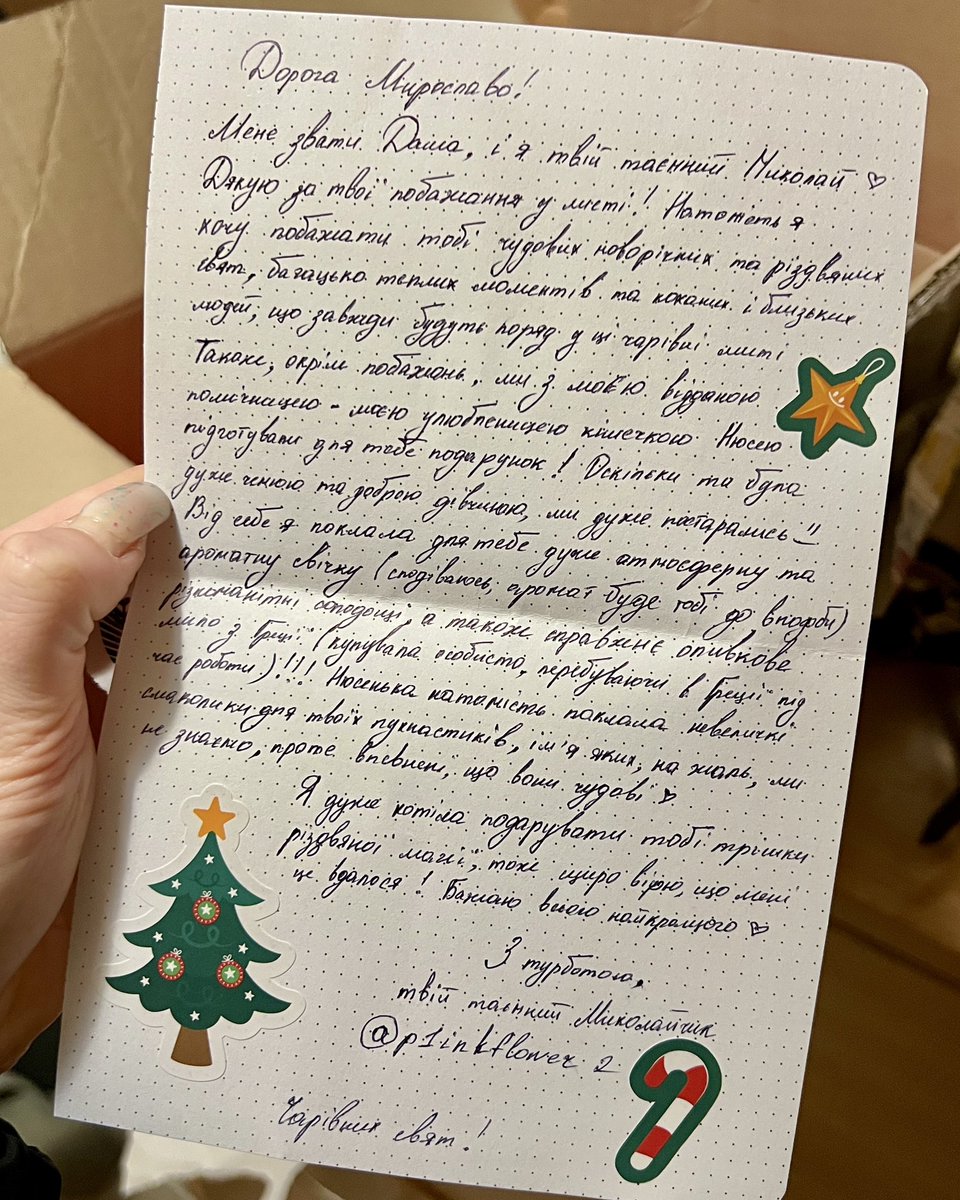 Дорога Мирославо!
Мене звати Даша, і я твій таємний Миколай ♡
Дякую за твої побажання у листі! Натомість я
хочу побажати тобі чудових новорічних та різдвяних
свят, багацько теплих моментів та коханих і близьких
людей, що завжди будуть поряд у ці чарівні миті
Також, окрім побажань, ми з моєю відданою
помічницею - моєю улюбленицею кішечкою Нюсею
підготували для тебе подарунок! Оскільки ти була
дуже чемною та доброю дівчиною, ми дуже постарались!!
Від себе я поклала для тебе дуже атмосферну та
ароматну свічку (сподіваюсь, аромат буде тобі до вподоби)
різноманітні солодощі, а також справжнє оливкове
мило з Греції (купувала особисто, перебуваючи в Греції під
час роботи)!!! Нюсенька натомість поклала невеличкі
смаколики для твоїх пухнастиків, ім'я яких, на жаль, ми
не знаємо, проте впевнені, що вони чудові ♡
Я дуже хотіла подарувати тобі трішки
різдвяної магії, тож щиро вірю, що мені
це вдалося! Бажаю всього найкращого ♡
З турботою,
твій таємний Миколайчик
@p1inkflower2
Чарівних свят!